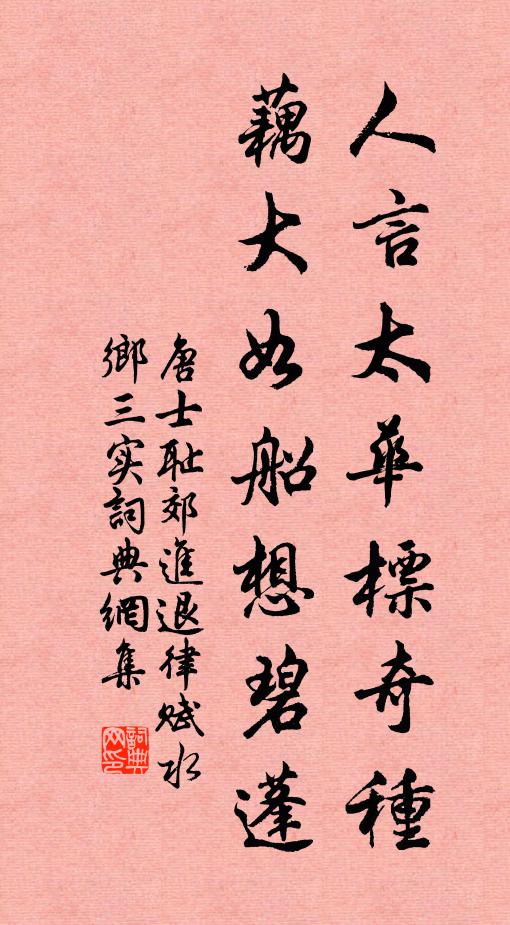 人言太華標奇種
藕大如船想碧蓬
唐士耻郊進退律賦水
鄉三实詞典網集
詞典網印